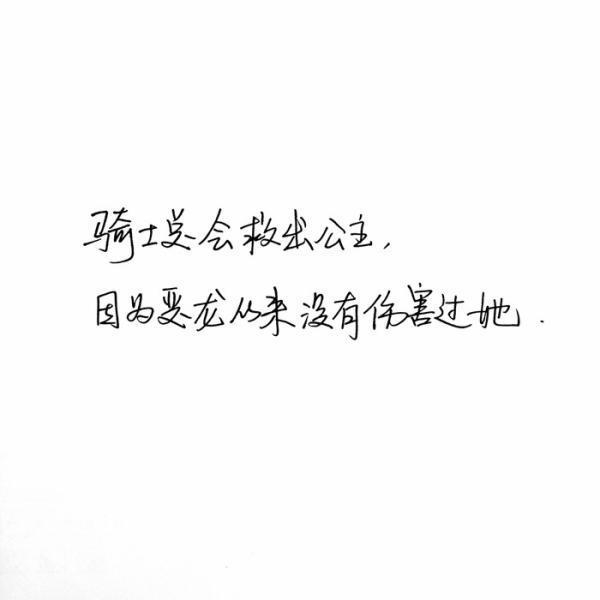 骑士总会救出公主,
因为恶龙从来没有伤害过她.